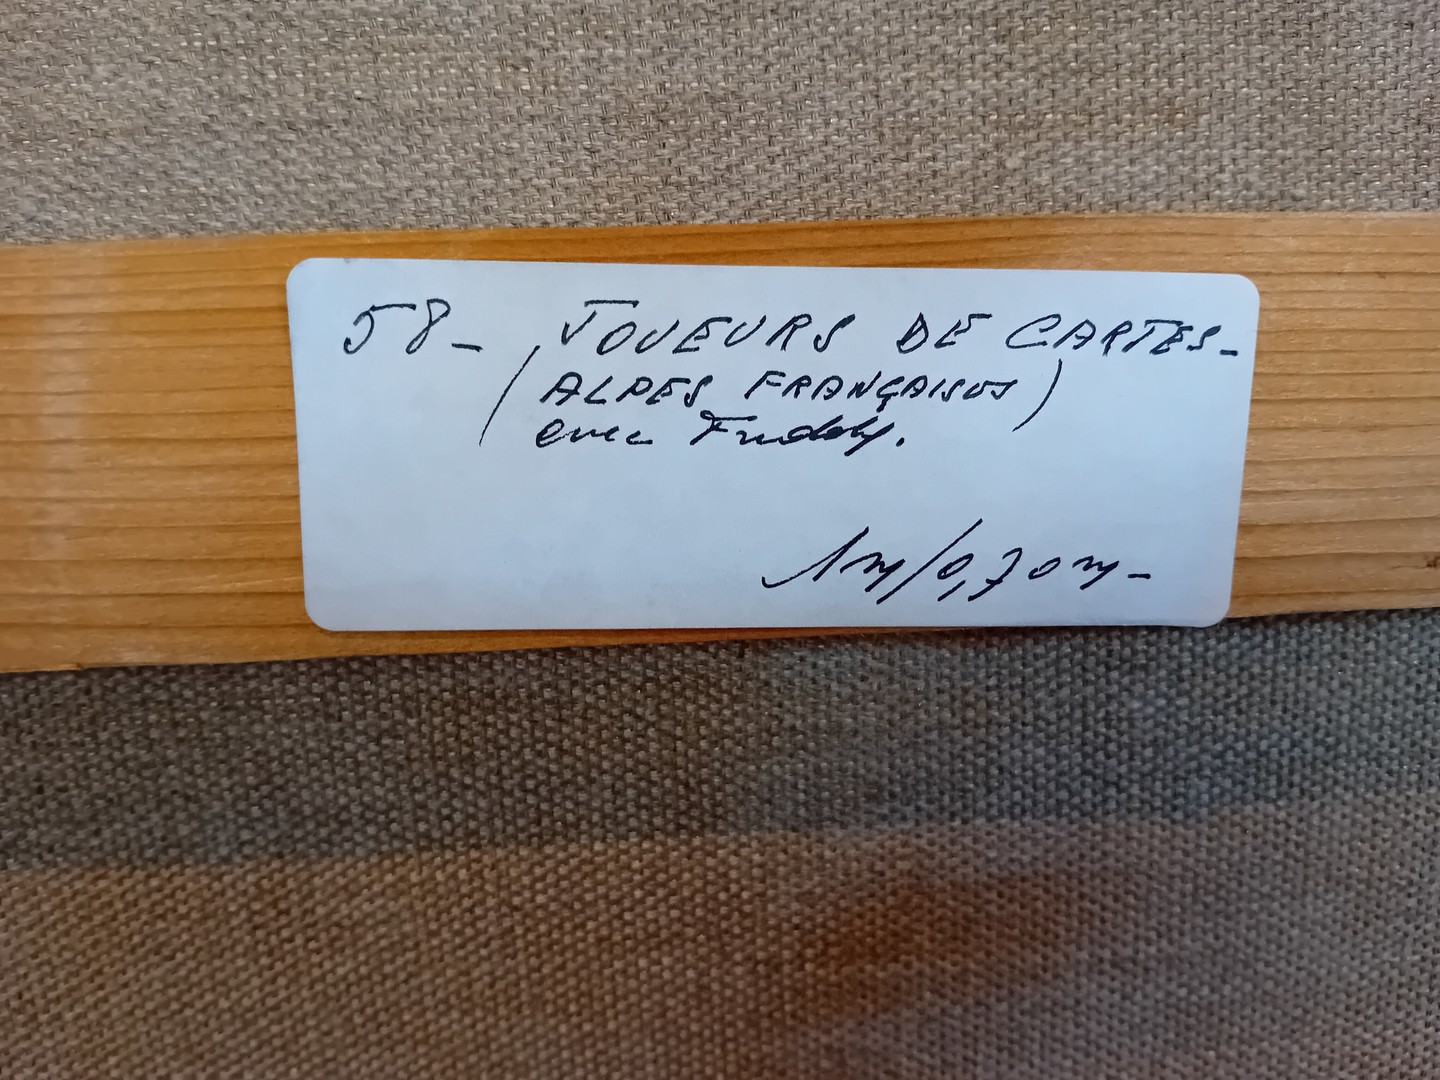 58_ JOUEURS DE CARTES_
(ALPES FRANÇAISES)
avec Freddy.
1m/0,70m_